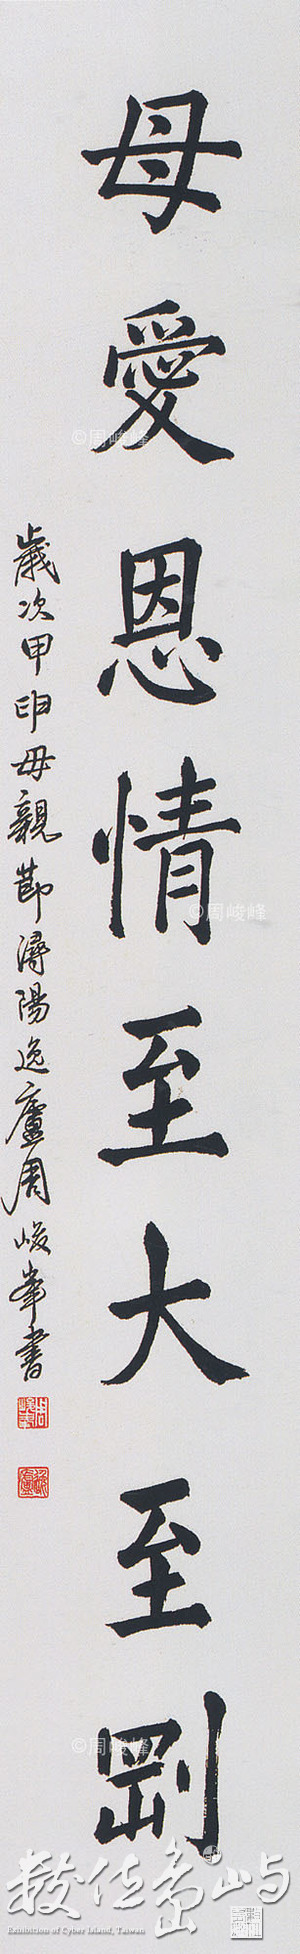 母愛恩情至大至剛
歲次甲申母親節潯陽逸廬周峻峯書
©周峻峰
©周峻峰
©周峻峰
數位島嶼
Exhibition of Cyber Island, Taiwan